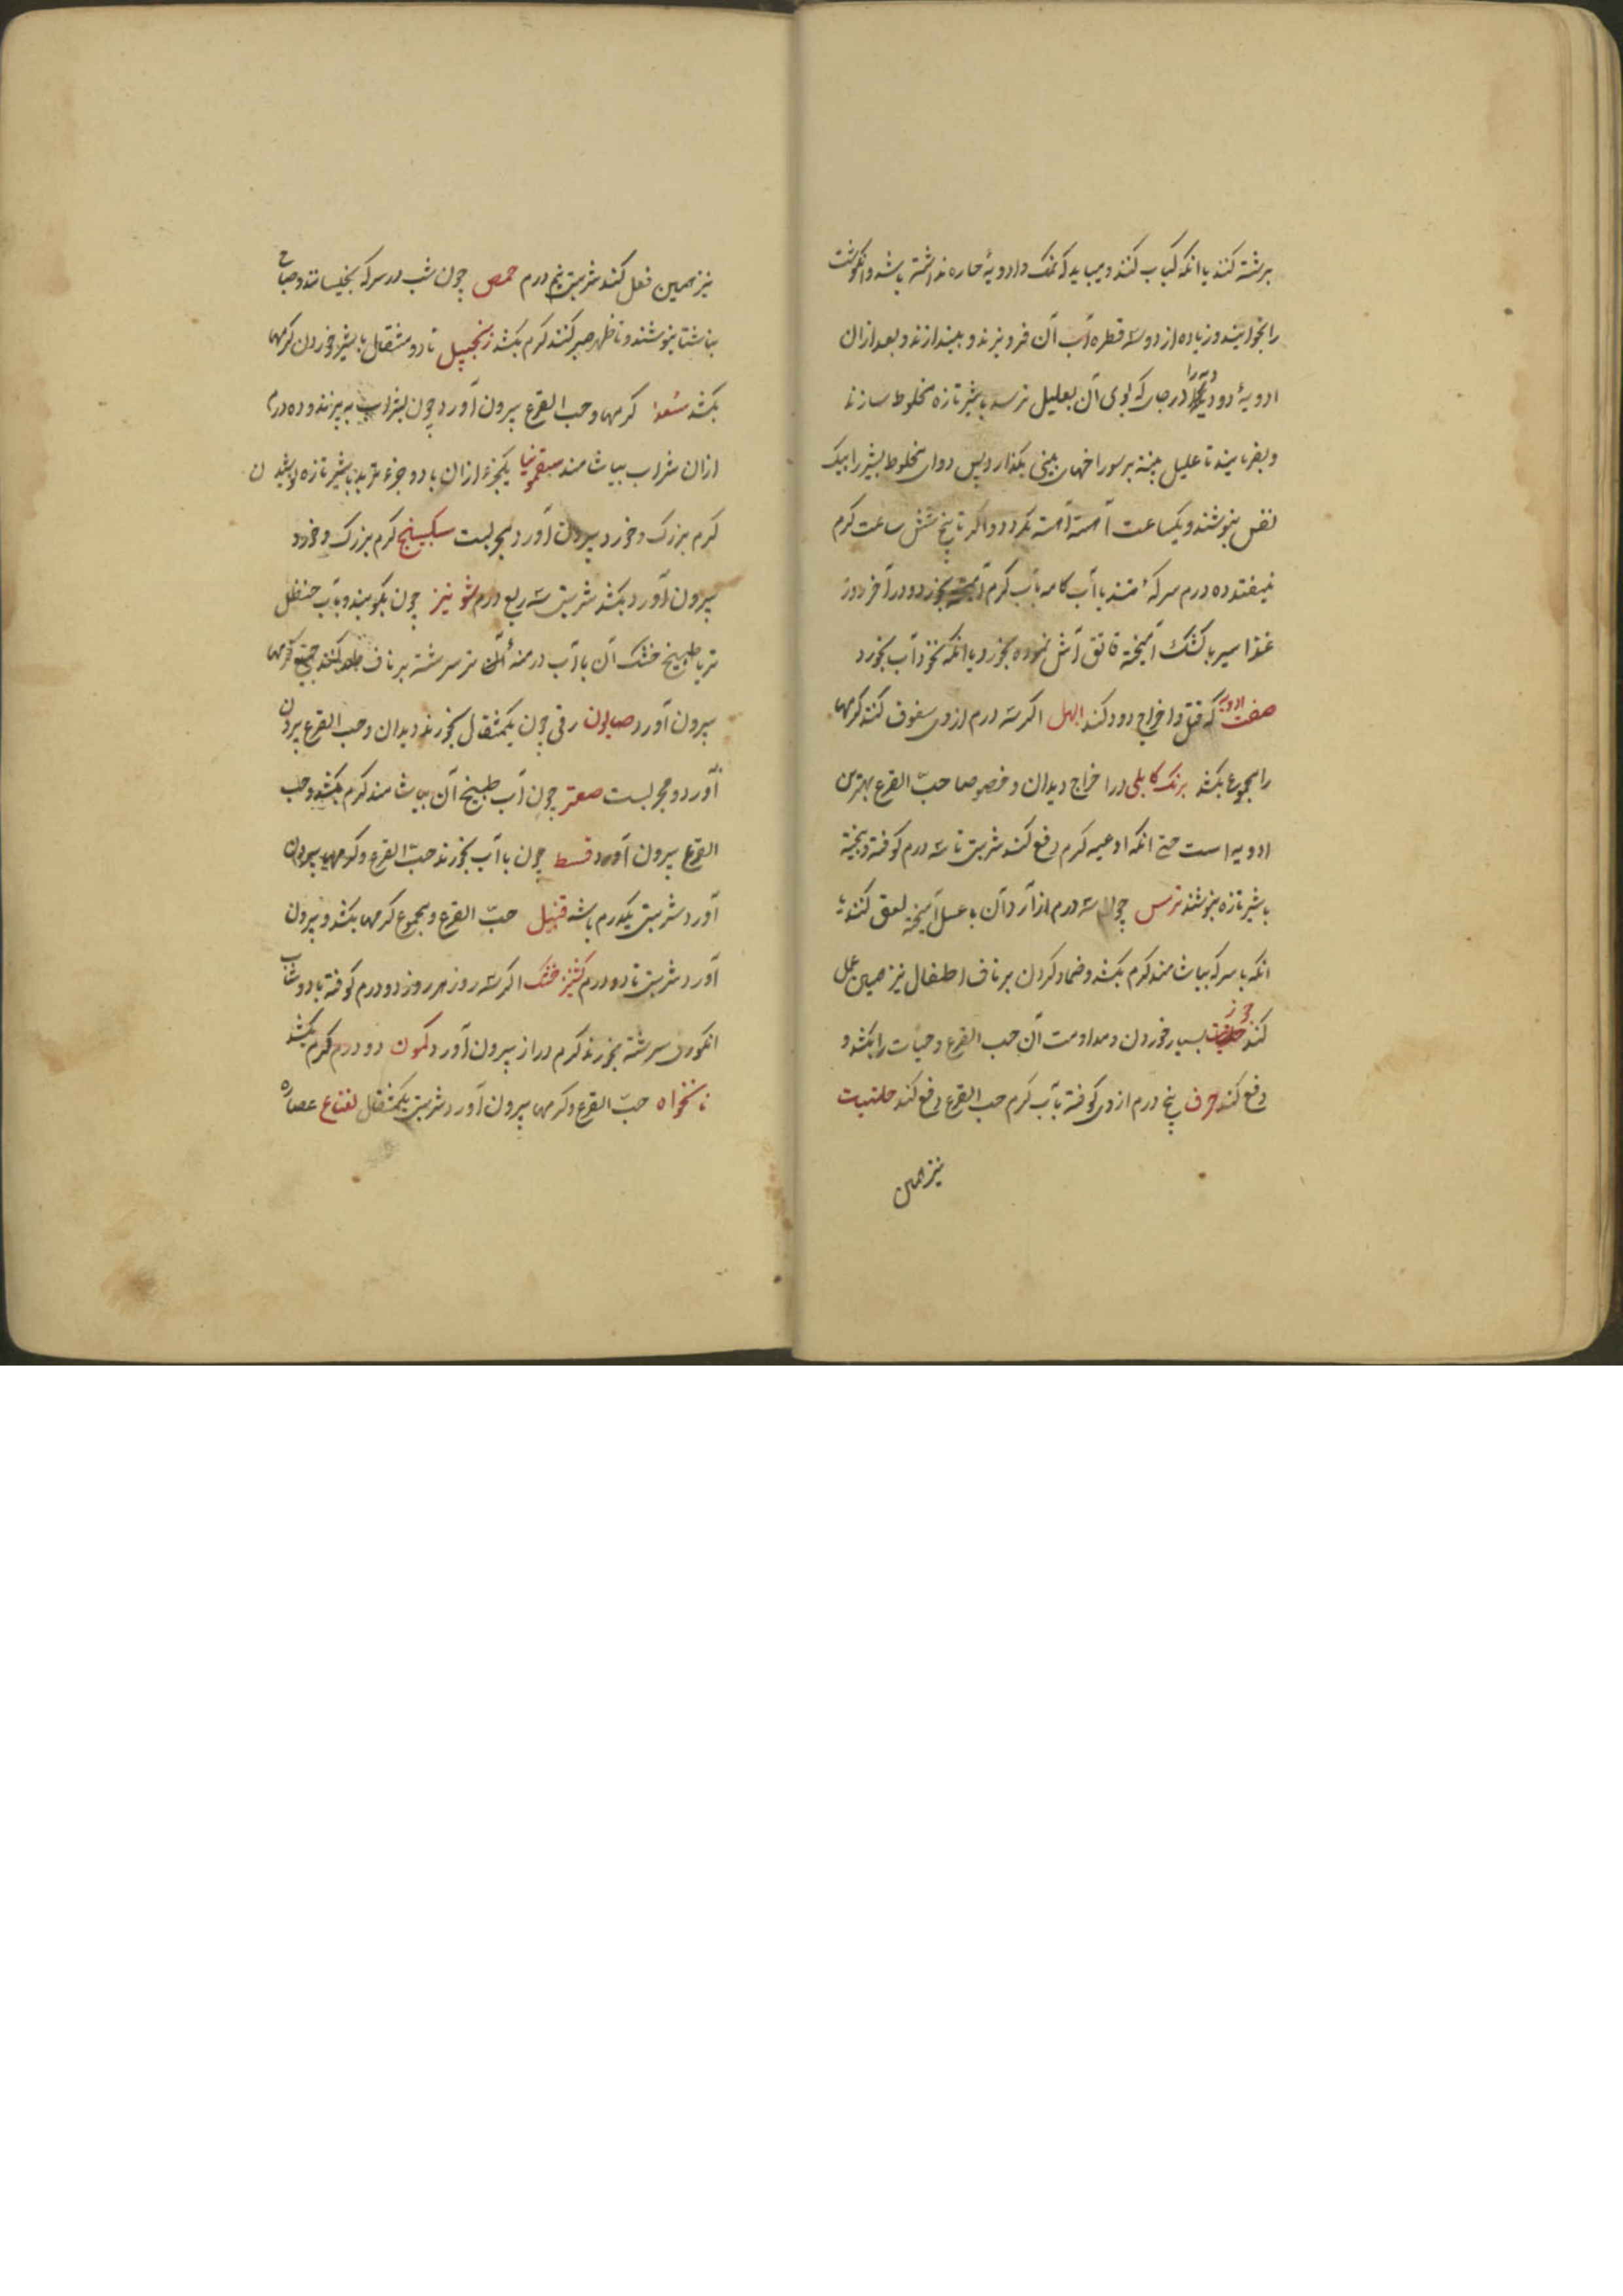 برشته کنند یا انکه کباب کنند و میباید که نمک و ادویهٔ حاره نداشته باشد و انکوشت
را بخوایند و زیاده از دو سه قطره آب آن فرو نبرند و بیندازند و بعد از آن
ادویهٔ دود در جای که بوی آن بعلیل نرسد با شیر تازه مخلوط سازند
و بفرمایند تا علیل پنبه بر سوراخهای بینی بکذارد پس دوای مخلوط بشیر را بیک
نفس بنوشند و یکساعت آهسته آهسته بکردد و اکر تا پنج شش ساعت کرم
نیفتد ده درم سرکهٔ تند با آب کامه بآب کرم آمیخته بخورد و در آخر روز
غذا سیر با کشک آمیخته قاتق آش نموده بخورد یا انکه نخود آب بخورد
صفت ادویه که قتل و اخراج دود کند ابهل اکر سه درم از وی سفوف کنند کرمها
را مجموع بکشد برنک کابلی در اخراج دیدان و خصوصا حبّ القرع بهترین
ادویه است حتی انکه اوعیه کرم دفع کند شربتی تا سه درم کوفته و بیخته
با شیر تازه بنوشند ترمس چون سه درم از آرد آن با عسل آمیخته لعق کنند یا
انکه با سرکه بیاشامند کرم بکشد و ضماد کردن بر ناف اطفال نیز همین عمل
کند جوز بسیار خوردن و مداومت آن حب القرع و حیات را بکشد و
دفع کند حرف پنج درم از وی کوفته بآب کرم حب القرع دفع کند حلتیت
نیز همین
نیز همین فعل کند شربتی پنج درم حمص چون شب در سرکه بخیسانند و صباح
بناشتا بنوشند و تا ظهر صبر کنند کرم بکشد زنجبیل تا دو مثقال با شیر خوردن کرمها
بکشد سعد کرمها و حب القرع بیرون آورد چون بشراب به پزند و ده درم
از ان شراب بیاشامند سقمونیا یکجزء از ان با دو جزء تربد با شیر تازه نوشیدن
کرم بزرک و خرد بیرون آورد و مجربست سکبینج کرم بزرک و خرد
بیرون آورد و بکشد شربتی سه ربع درم شونیز چون بکوبند و بآب حنظل
تر یا طبیخ خشک آن یا آب درمنهٔ تر سرشته بر ناف طلا کنند جمیع کرمها
بیرون آورد صابون رقی چون یکمثقال بخورند دیدان و حب القرع بیرون
آورد و مجربست صعتر چون آب طبیخ آن بیاشامند کرم بکشد و حب
القرع بیرون آورد قسط چون با آب بخورند حبّ القرع و کرمها بیرون
آورد شربتی یکدرم باشد قنبیل حبّ القرع و مجموع کرمها بکشد و بیرون
آورد شربتی تا دو درم کشنیز خشک اکر سه روز هر روز دو درم کوفته با دوشاب
انکوری سرشته بخورند کرم دراز بیرون آورد کمون دو درم کرم بکشد
نانخواه حبّ القرع و کرمها بیرون آورد شربتی یکمثقال نعناع عصاره